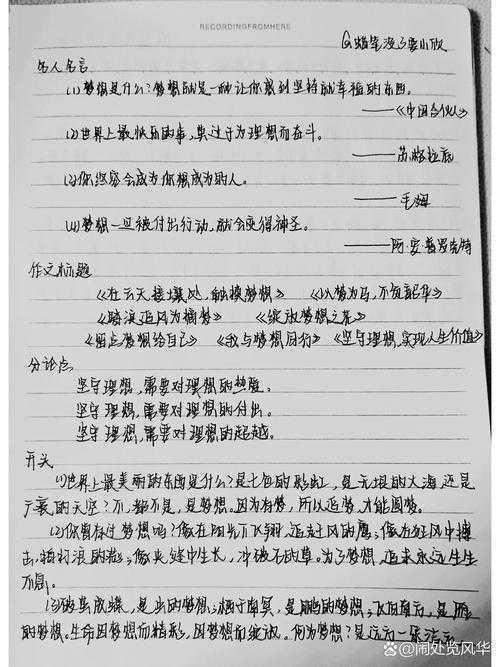 RECORDINGFROMHERE
@蜡笔没了姜小欣
名人名言
(1)梦想是什么?梦想就是一种让你感到坚持就幸福的东西。
——《中国合伙人》
(2)世界上最快乐的事,莫过于为理想而奋斗。
——苏格拉底
(3)你终究会成为你想成为的人。
——毛姆
(4)梦想一旦被付出行动,就会变得神圣。
——阿·安·普罗克特
作文标题
《在云天接壤处,触摸梦想》 《以梦为马,不负韶华》
《踏浪追风为摘梦》 《绽放梦想之花》
《留点梦想给自己》 《我与梦想同行》 《坚守理想,实现人生价值》
分论点
坚守理想,需要对理想的热爱。
坚守理想,需要对理想的付出。
坚守理想,需要对理想的超越。
开头
(1)世界上最美丽的东西是什么?是七色的彩虹,是无垠的大海还是
广袤的天空?不,都不是,是梦想。因为有梦,所以追梦,才能圆梦。
(2)你曾有过梦想吗?像在阳光下飞翔,追赶风的鹰;像在好风中搏
击,拍打浪的;像夹缝中生长,冲破石的草。为了梦想,追求永远生生
不息。
(3)破茧成蝶,是虫的梦想;栖于南冥,是鹏的梦想;飞向南方,是雁
的梦想。生命因梦想而精彩,因梦想而绽放。何为梦想?是这
@闹处览风华